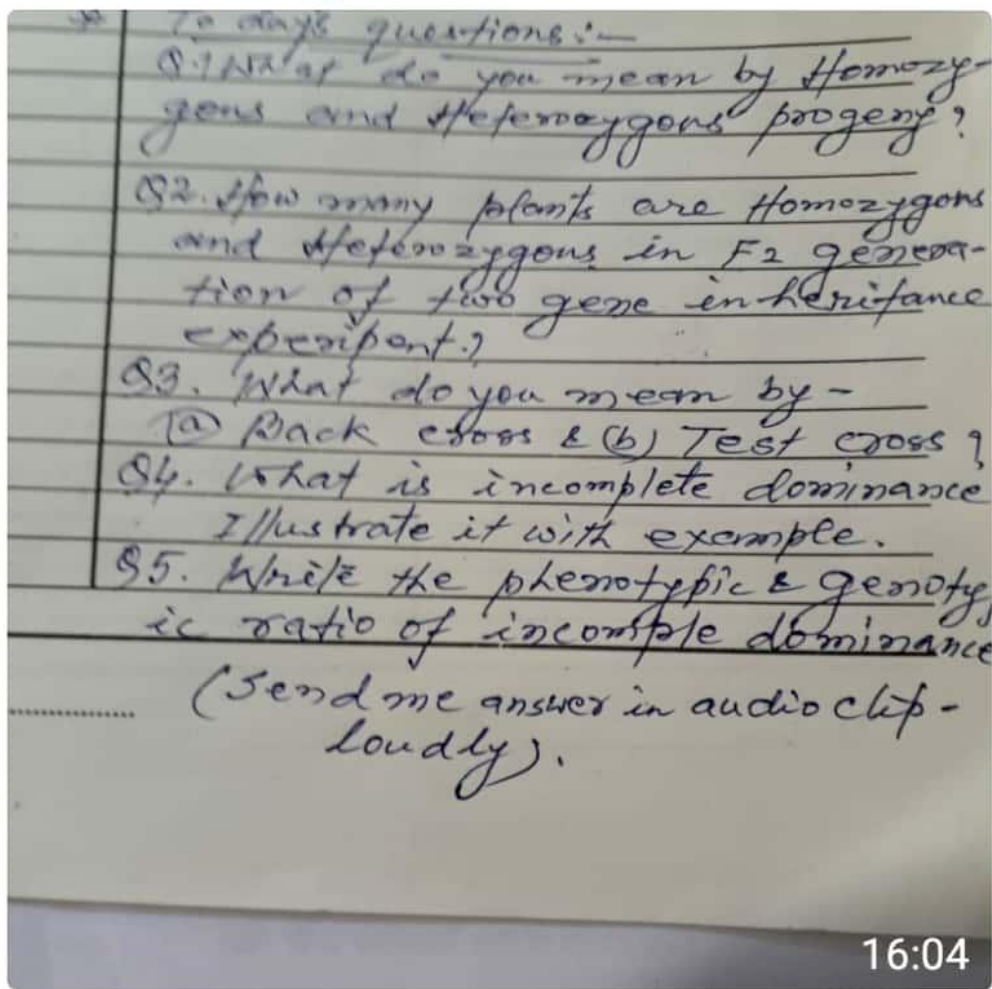 To day's questions:-
Q.1 What do you mean by Homozy-
gous and Heterozygous progeny?
Q2. How many plants are Homozygous
and Heterozygous in F2 genera-
tion of two gene inheritance
experipent.?
Q3. What do you mean by -
(a) Back cross & (b) Test cross?
Q4. What is incomplete dominance
Illustrate it with example.
Q5. Write the phenotypic & genotyp
ic ratio of incomple dominance
(Send me answer in audio clip-
loudly).
16:04